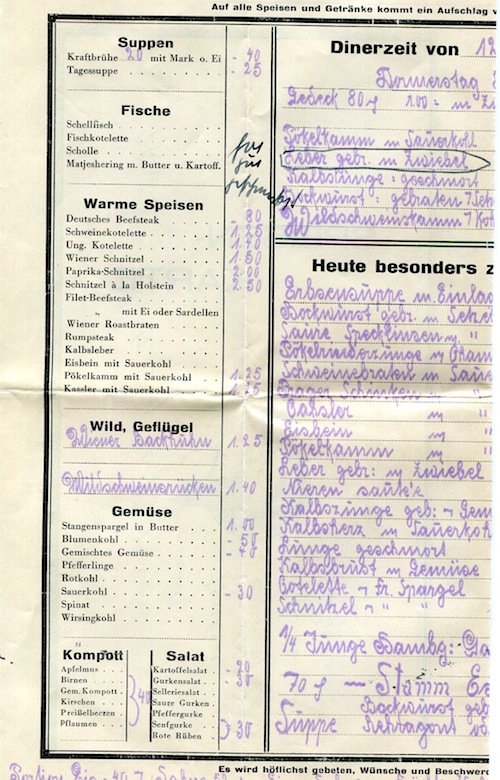 Auf alle Speisen und Getränke kommt ein Aufschlag v
Suppen
Kraftbrühe 20 mit Mark o. Ei - 40
Tagessuppe - 25
Fische
Schellfisch
Fischkotelette
Scholle
Matjeshering m. Butter u. Kartoff.
Warme Speisen
Deutsches Beefsteak - 80
Schweinekotelette 1.25
Ung. Kotelette 1.40
Wiener Schnitzel 1.50
Paprika-Schnitzel 2.00
Schnitzel à la Holstein 2.50
Filet-Beefsteak
„ mit Ei oder Sardellen
Wiener Roastbraten
Rumpsteak
Kalbsleber
Eisbein mit Sauerkohl
Pökelkamm mit Sauerkohl 1.25
Kassler mit Sauerkohl 1.25
Wild, Geflügel
Wiener Backhuhn 1.25
Wildschweinsrücken 1.40
Gemüse
Stangenspargel in Butter
Blumenkohl - 50
Gemischtes Gemüse
Pfefferlinge
Rotkohl
Sauerkohl - 30
Spinat
Wirsingkohl
Kompott
Apfelmus
Birnen
Gem. Kompott
Kirschen
Preißelbeeren
Pflaumen
40
Salat
Kartoffelsalat - 20
Gurkensalat - 30
Selleriesalat
Saure Gurken
Pfeffergurke
Senfgurke
Rote Rüben
30
Dinerzeit von 12
Donnerstag
Gedeck 80 m
Pökelkamm m Sauerkohl
Leber gebr. m Zwiebel
Kalbslunge geschmort
Bockwurst gebraten
Wildschweinskamm
Heute besonders z
Erbsensuppe m. Einlag
Bockwurst gebr. m
Saure m "
Pökelrinderzunge m
Schweinebraten m Saue
Prager Schinken m "
Cassler m "
Eisbein m "
Pökelkamm m "
Leber gebr. m Zwiebel
Nieren sauté
Kalbszunge geb. Gem
Kalbsherz m Sauerkoh
Lunge geschmort
Kalbsbrust m Gemüse
Cotelette Fr. Spargel
Schnitzel " "
1/4 Junge Hambg:
70 Stamm
Bockwurst geb
Suppe Rehragout
Es wird höflichst gebeten, Wünsche und Beschwer